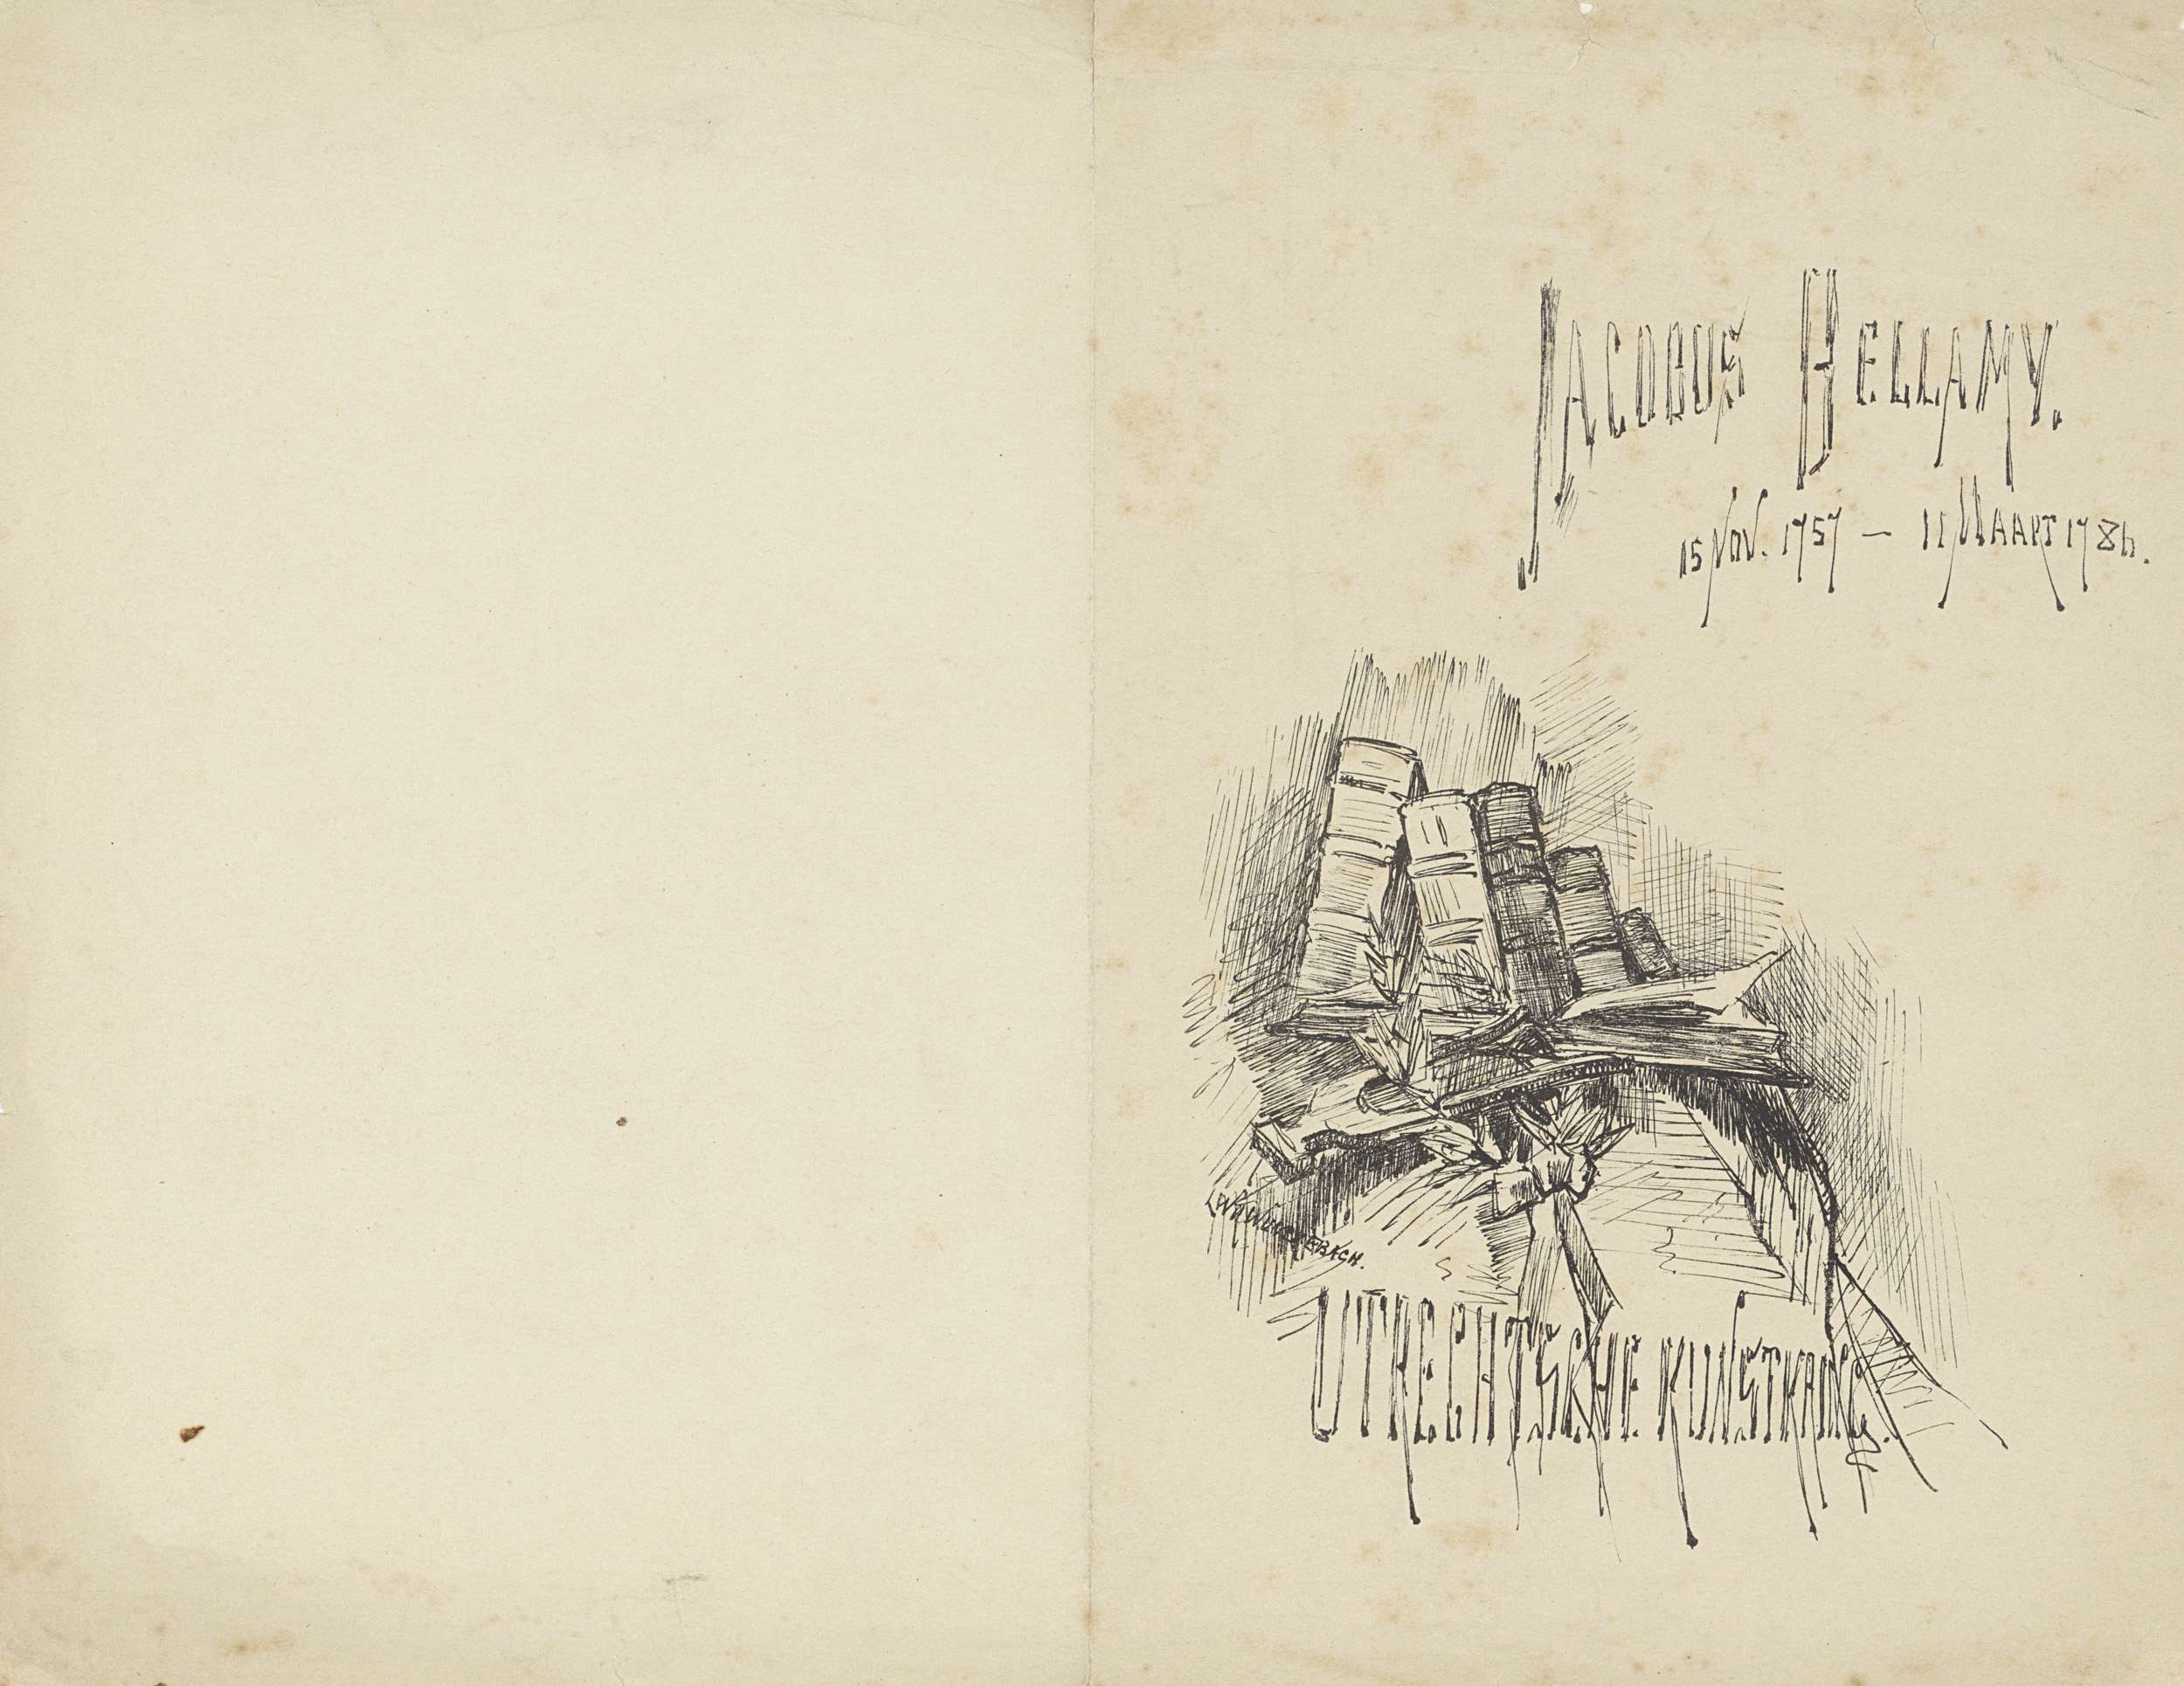 JACOBUS BELLAMY.
15 NOV. 1757 — 11 MAART 1786.
UTRECHTSCHE KUNSTKRING.